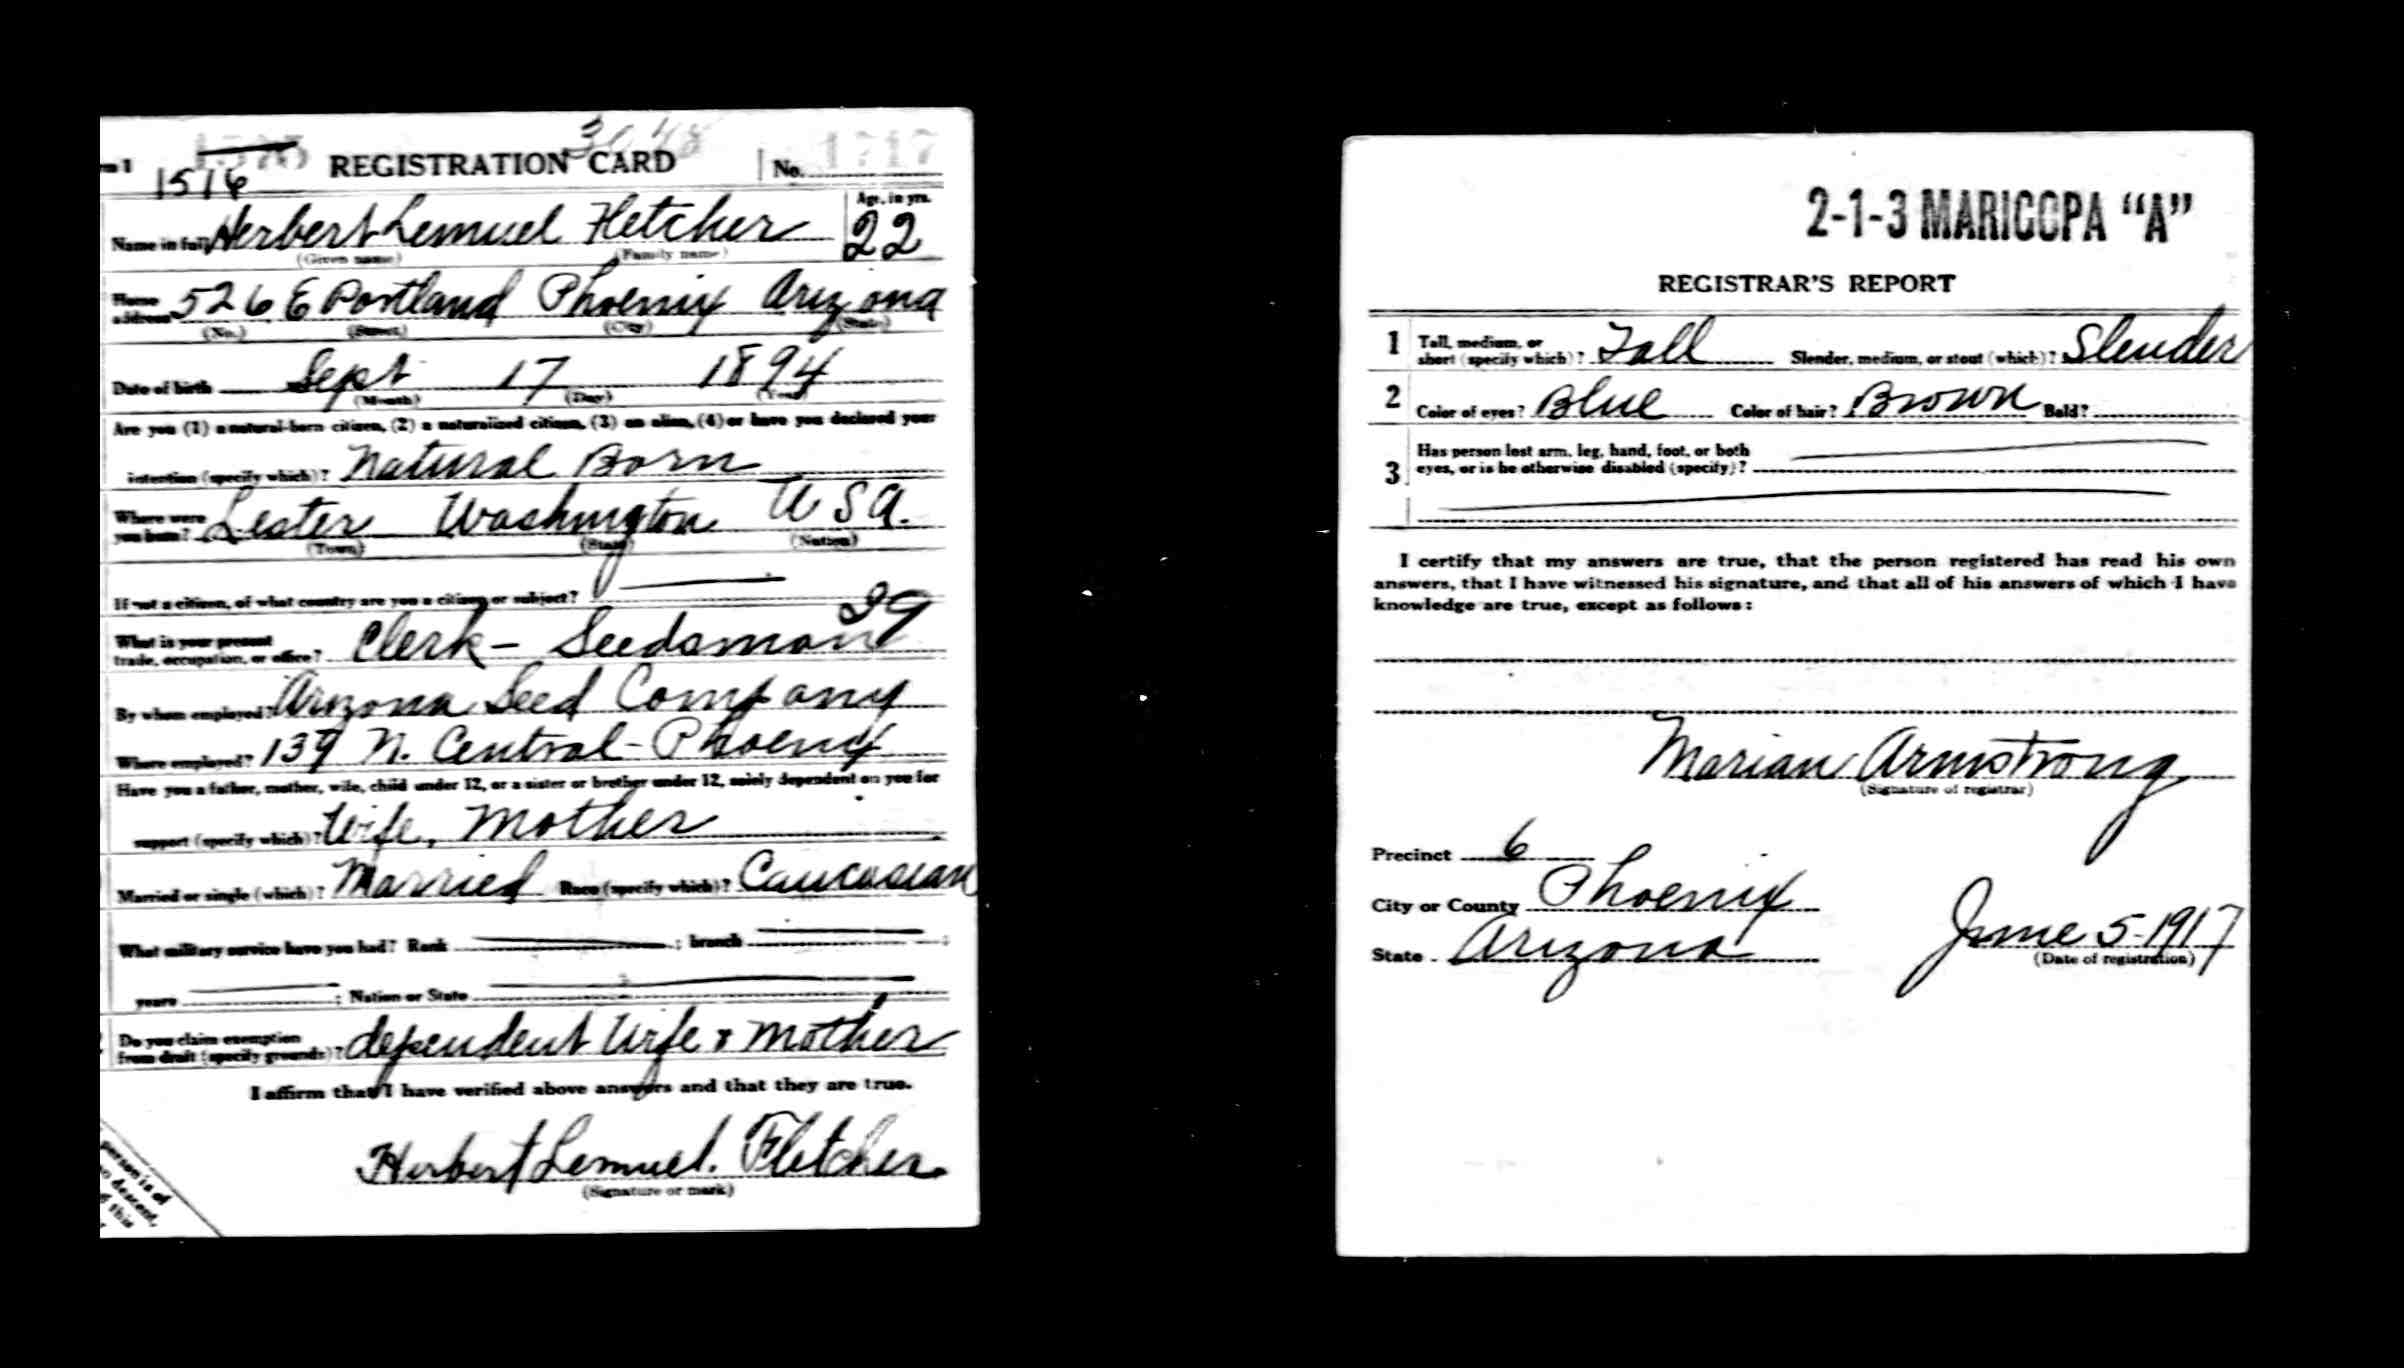 REGISTRATION CARD No. 1717
1516
Name in full Herbert Lemuel Fletcher Age, in yrs. 22
(Given name) (Family name)
Home address 526 E Portland Phoenix Arizona
(No.) (Street) (City) (State)
Date of birth Sept 17 1894
(Month) (Day) (Year)
Are you (1) a natural-born citizen, (2) a naturalized citizen, (3) an alien, (4) or have you declared your
intention (specify which)? Natural Born
Where were you born? Lester Washington USA.
(Town) (State) (Nation)
If not a citizen, of what country are you a citizen or subject?
What is your present trade, occupation, or office? Clerk - Seedsman 29
By whom employed? Arizona Seed Company
Where employed? 139 N. Central - Phoenix
Have you a father, mother, wife, child under 12, or a sister or brother under 12, solely dependent on you for
support (specify which)? Wife, Mother
Married or single (which)? Married Race (specify which)? Caucasian
What military service have you had? Rank ; branch ;
years ; Nation or State
Do you claim exemption from draft (specify grounds)? dependent Wife & Mother
I affirm that I have verified above answers and that they are true.
Herbert Lemuel. Fletcher
(Signature or mark)
person is of
descent,
this
2-1-3 MARICOPA "A"
REGISTRAR'S REPORT
1 Tall, medium, or short (specify which)? Tall Slender, medium, or stout (which)? Slender
2 Color of eyes? Blue Color of hair? Brown Bald?
3 Has person lost arm, leg, hand, foot, or both
eyes, or is he otherwise disabled (specify)?
I certify that my answers are true, that the person registered has read his own
answers, that I have witnessed his signature, and that all of his answers of which I have
knowledge are true, except as follows:
Marian Armstrong
(Signature of registrar)
Precinct 6
City or County Phoenix
State Arizona June 5-1917
(Date of registration)